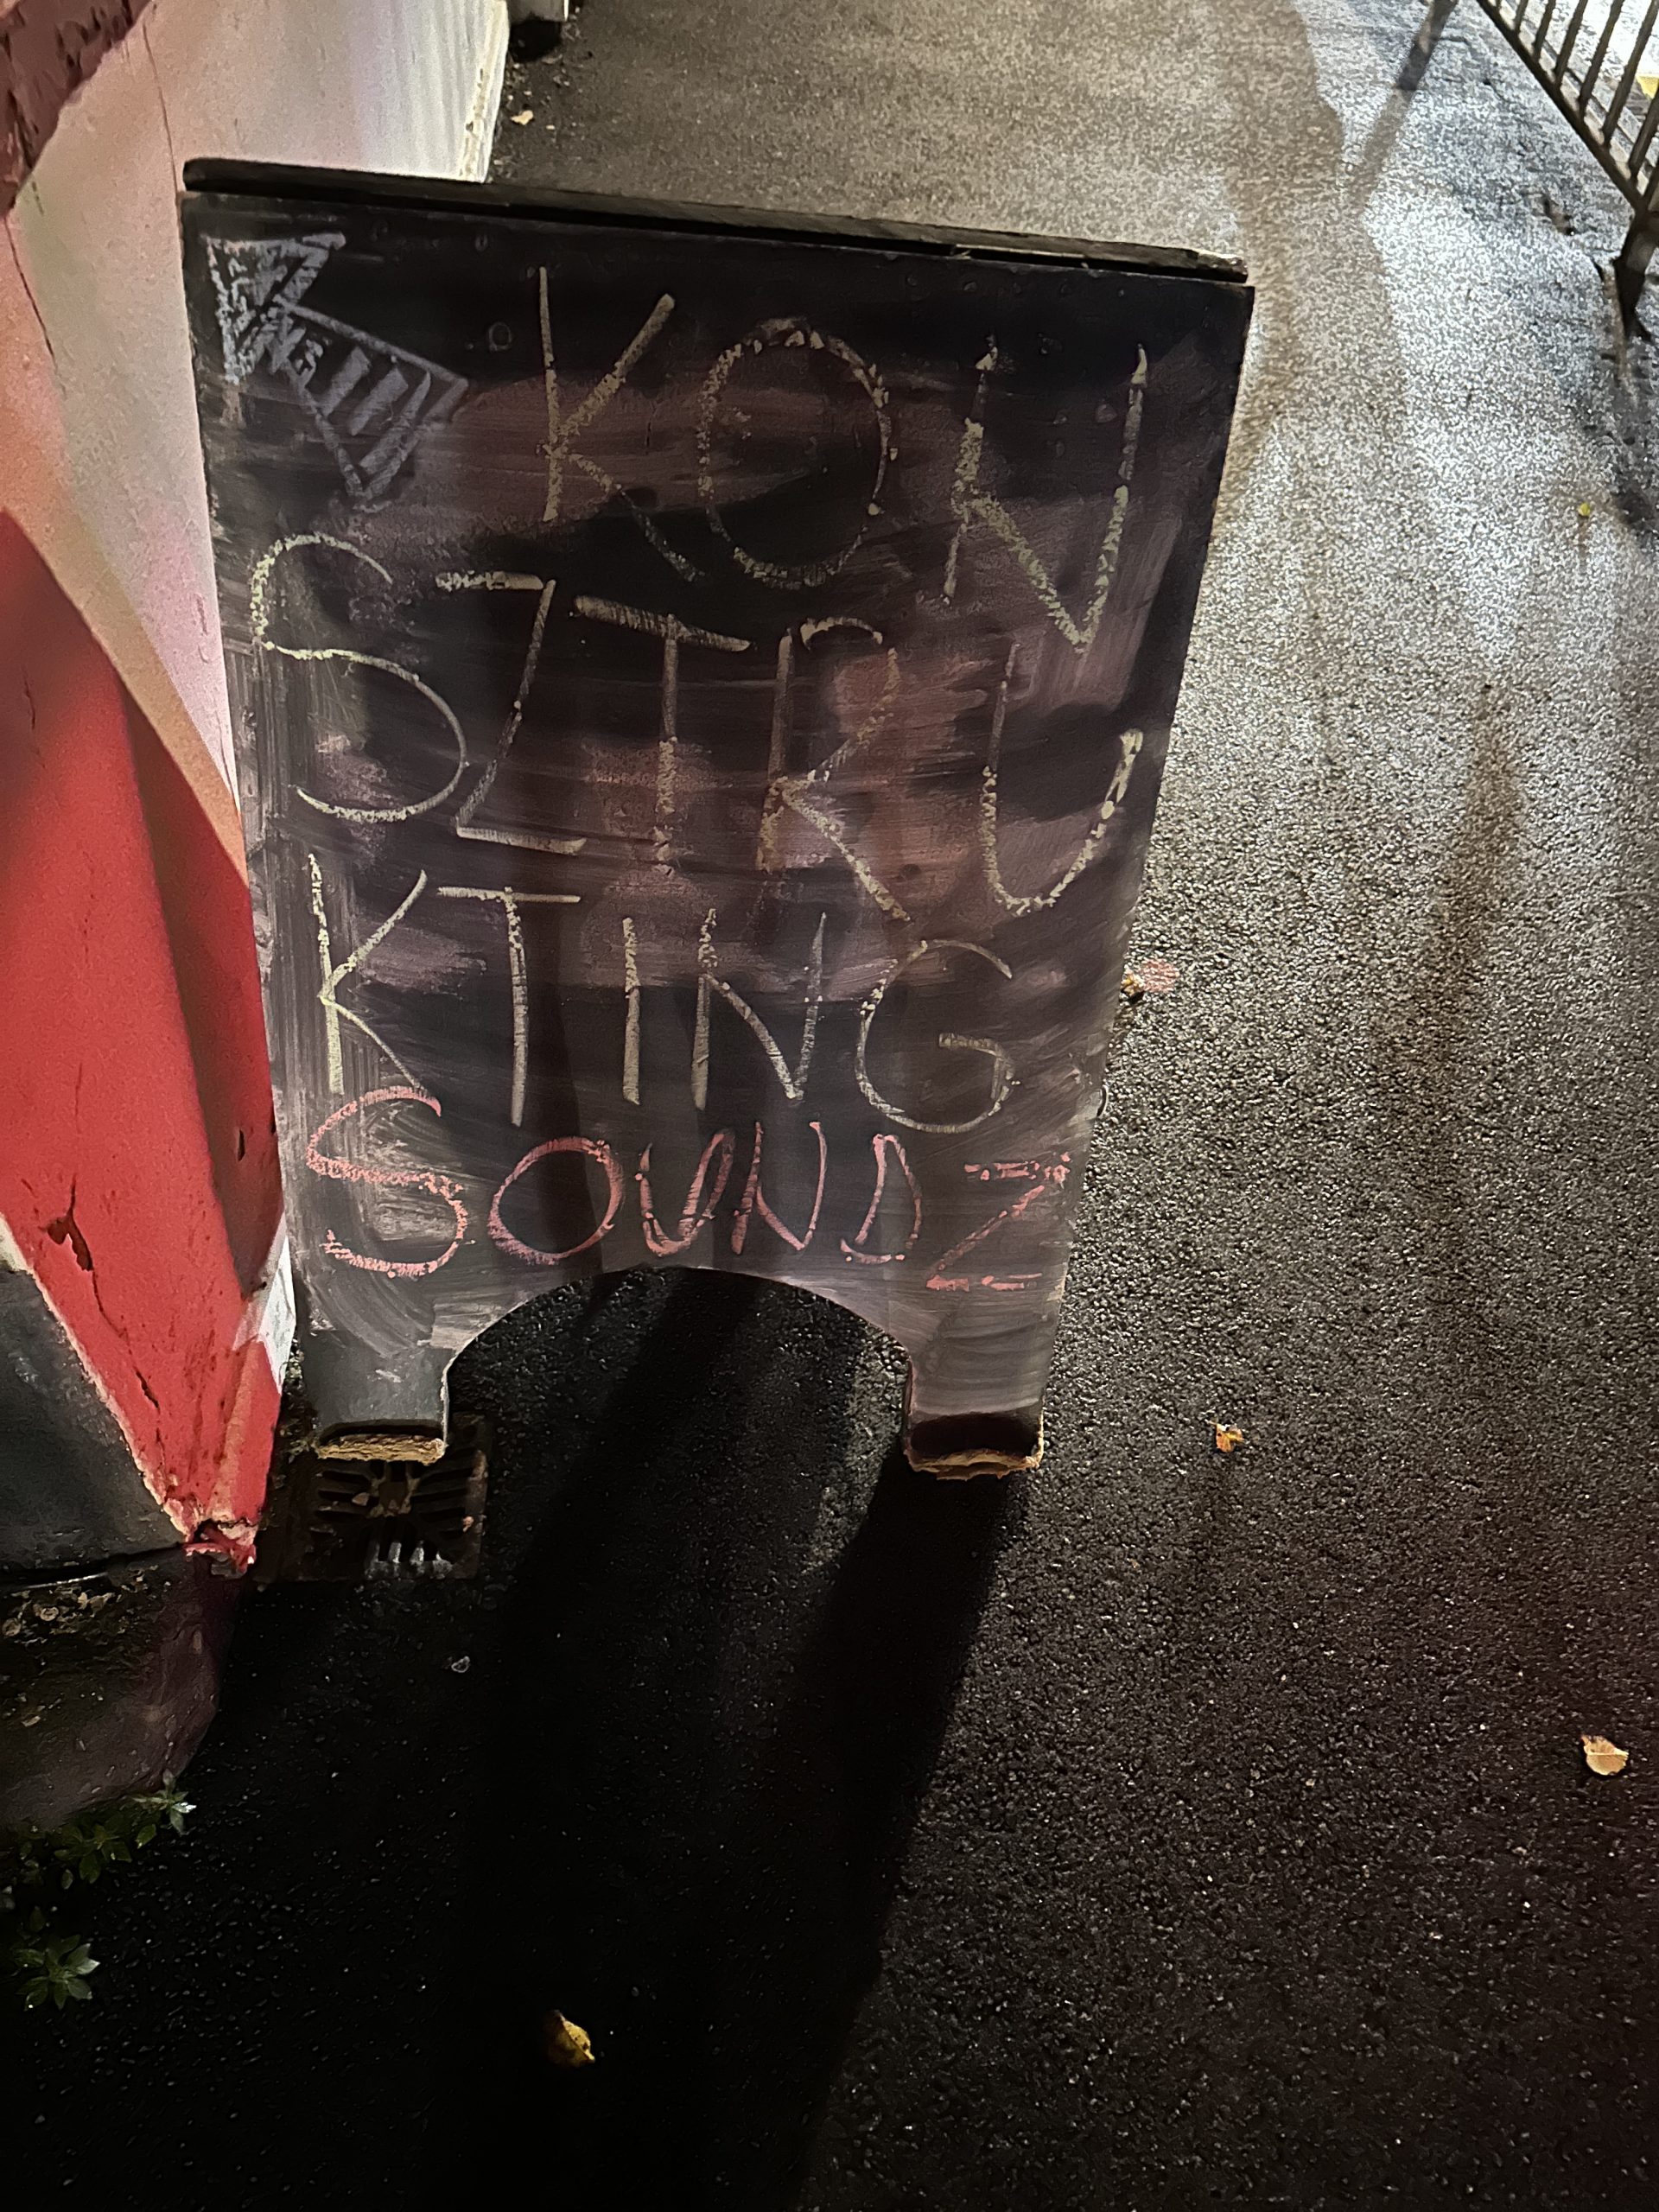 KON
SZTRU
KTING
SOUNDZ